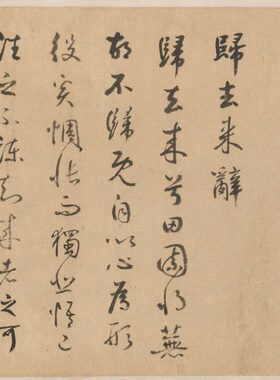 歸去来辭
歸去来兮田園將蕪
胡不歸既自以心為形
役奚惆悵而獨悲悟已
往之不諫知来者之可